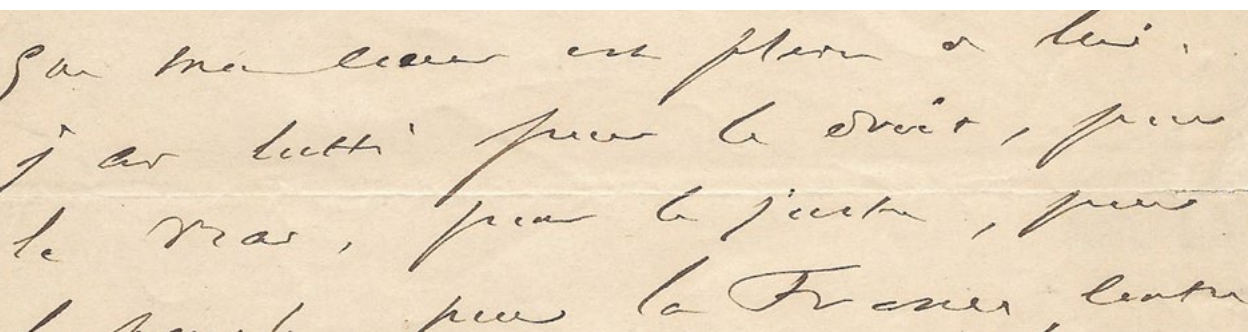 que mon cœur est plein de lui.
j'ai lutté pour le droit, pour
le vrai, pour le juste, pour
le peuple, pour la France, contre